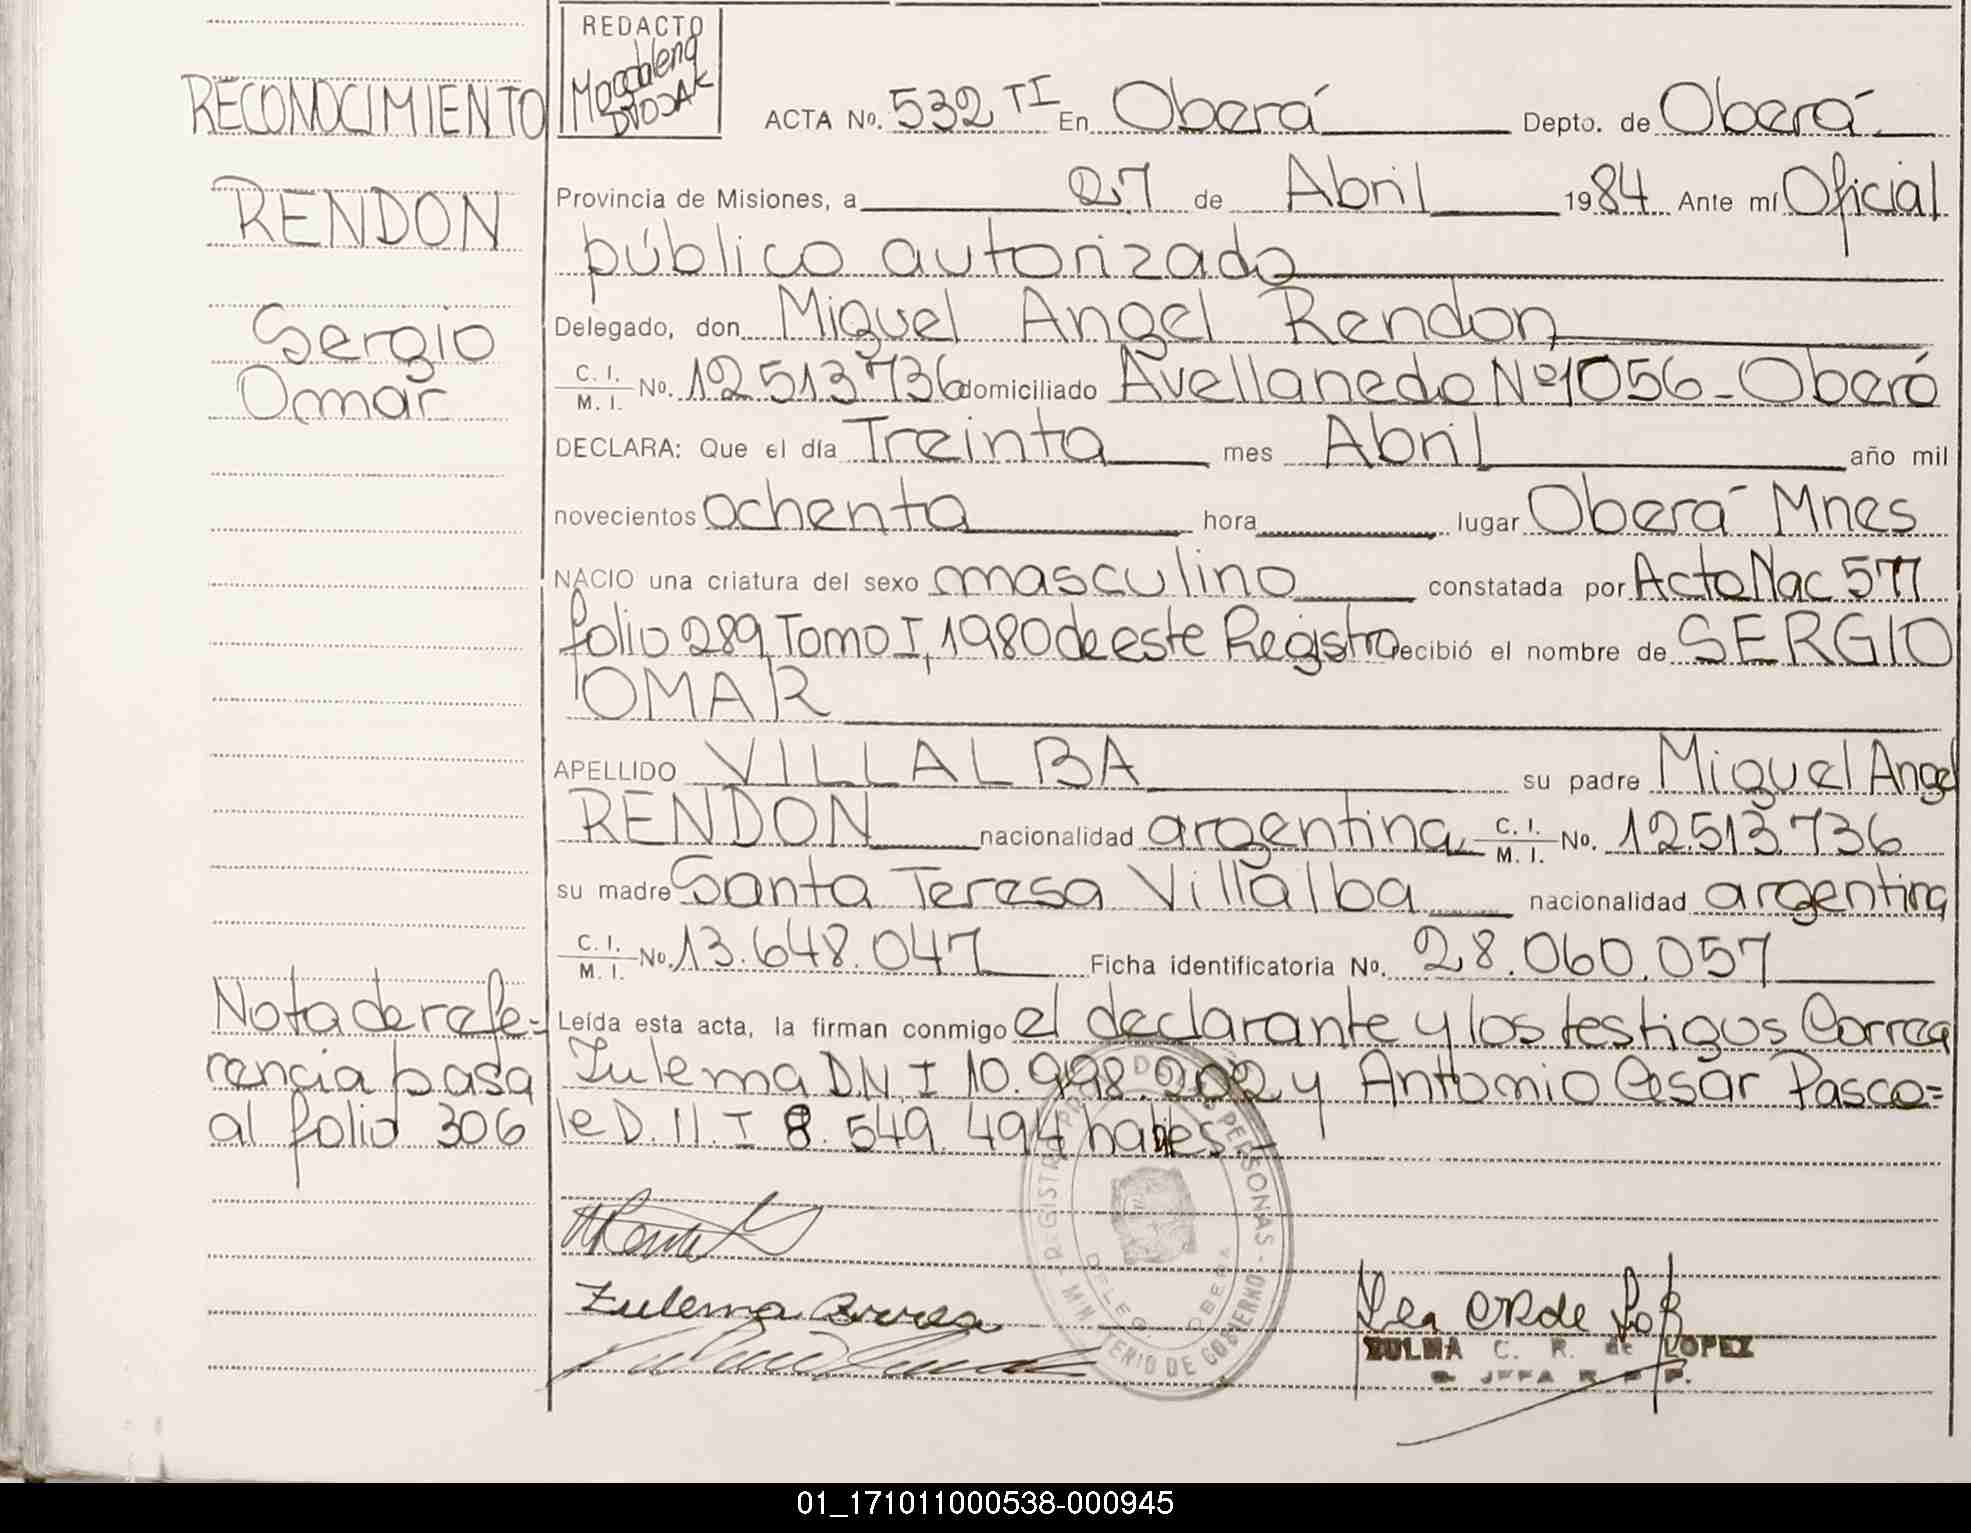 REDACTO
Magdalena
DVOJAK
RECONOCIMIENTO
ACTA No. 532 TI En Oberá Depto. de Oberá
RENDON
Provincia de Misiones, a 27 de Abril 1984 Ante mí Oficial
público autorizado
Sergio
Omar
Delegado, don Miguel Angel Rendon
C. I. M. I. No. 12513736 domiciliado Avellaneda Nº 1056 - Oberá
DECLARA: Que el día Treinta mes Abril año mil
novecientos ochenta hora lugar Oberá Mnes
NACIO una criatura del sexo masculino constatada por Acta Nac 577
folio 289, Tomo I, 1980 de este Registro recibió el nombre de SERGIO
OMAR
APELLIDO VILLALBA su padre Miguel Angel
RENDON nacionalidad argentina C. I. M. I. No. 12.513.736
su madre Santa Teresa Villalba nacionalidad argentina
C. I. M. I. No. 13.648.047 Ficha identificatoria No. 28.060.057
Nota de refe=
rencia pasa
al folio 306
Leída esta acta, la firman conmigo el declarante y los testigos Correa
Zulema D.N.I 10.998.202 y Antonio Cesar Pasco=
le D.N.I 8.549.494 habiles.-
Zulema Correa
REGISTRO DE PERSONAS - GOBIERNO
DELEG. OBERA
ZULMA C. R. de LOPEZ
01_171011000538-000945